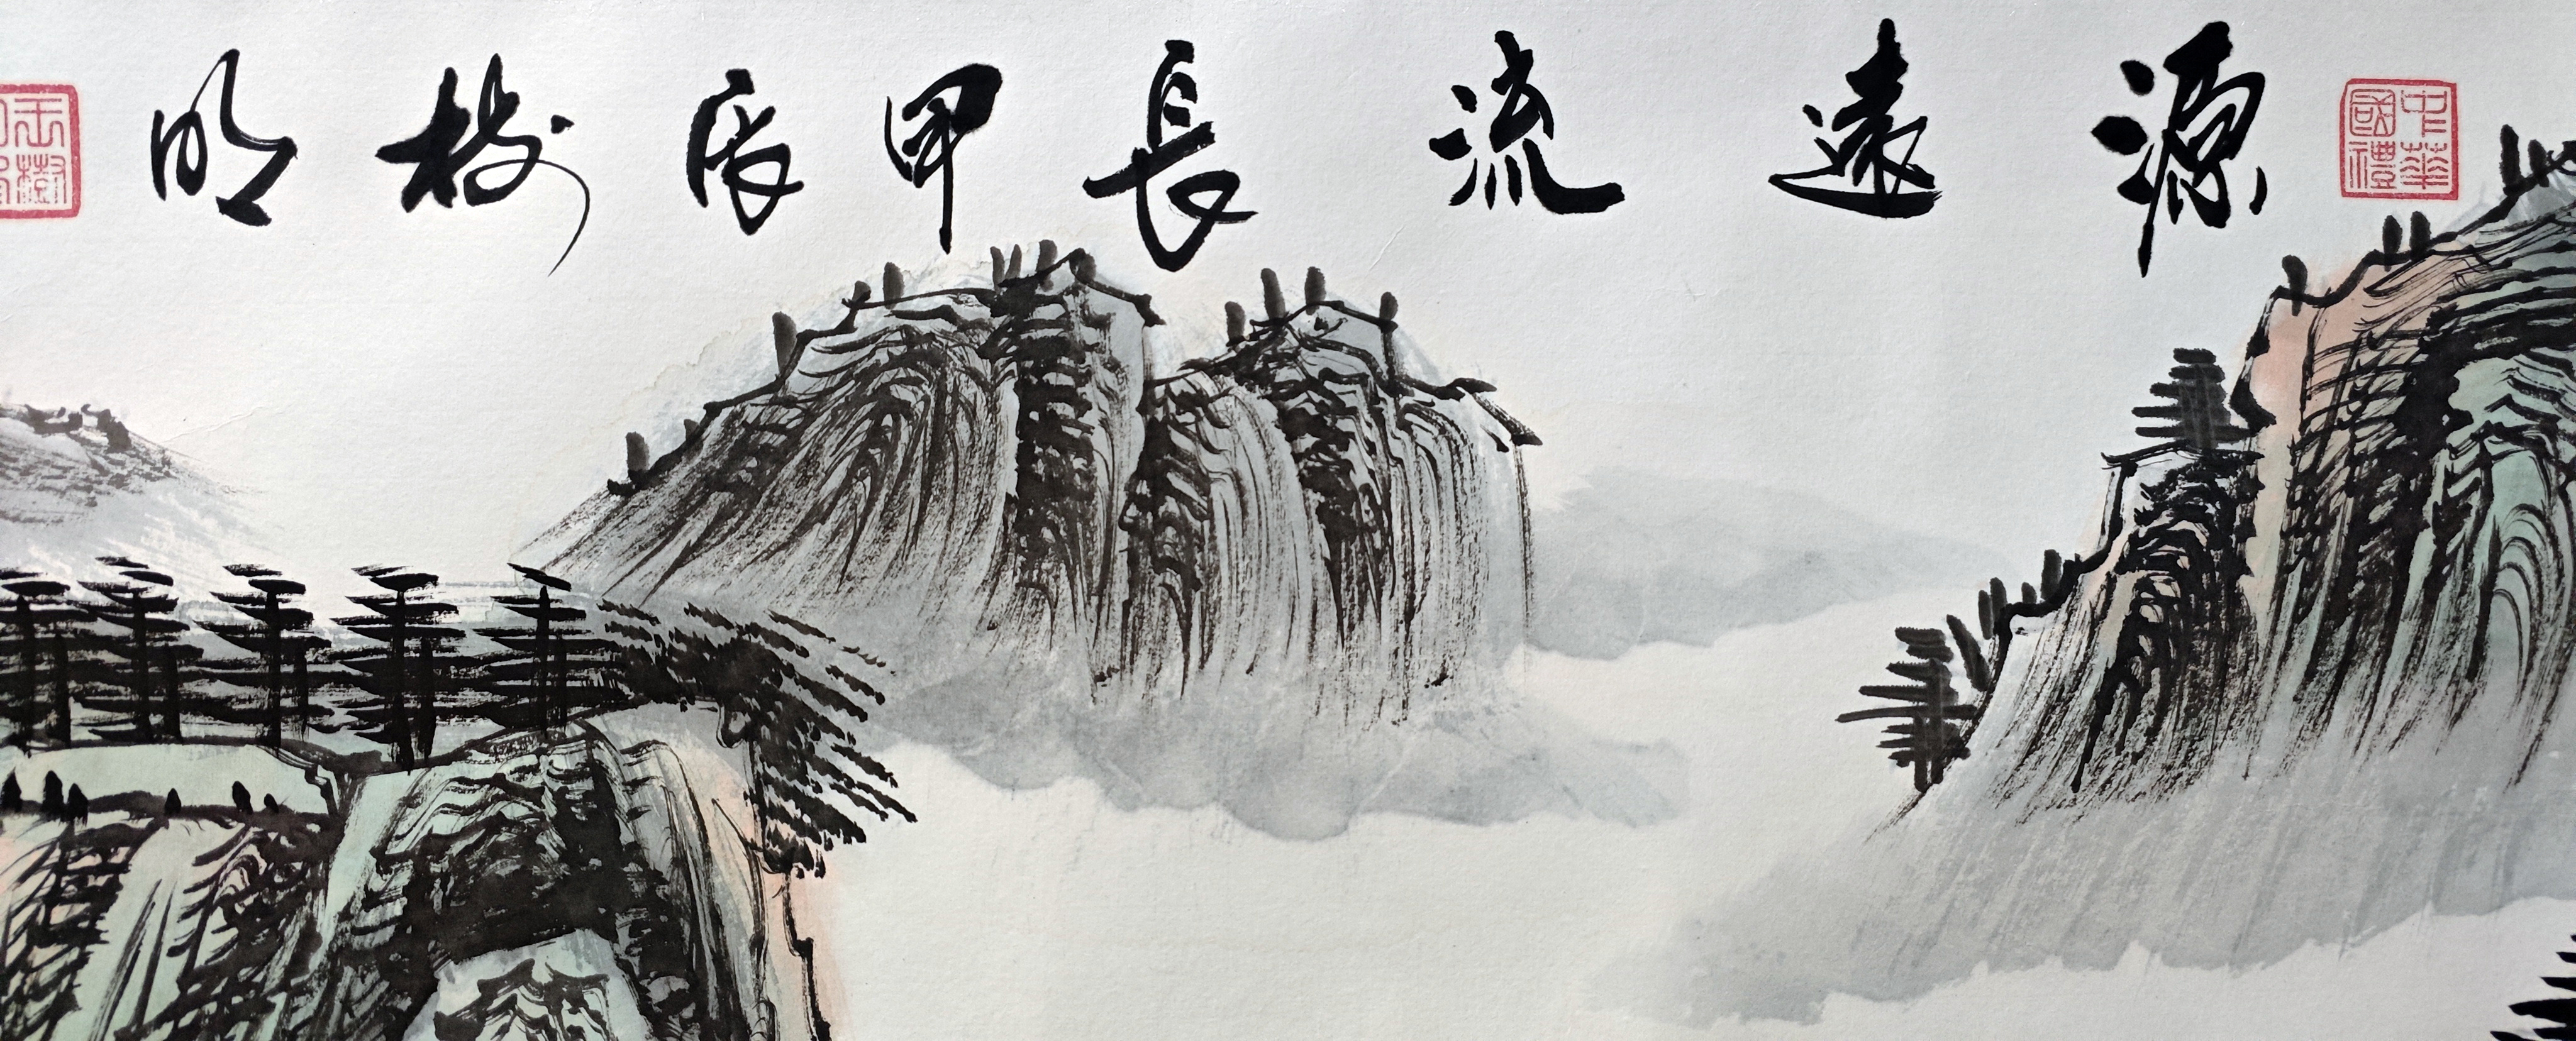 源遠流長甲辰樹明
中華國禮